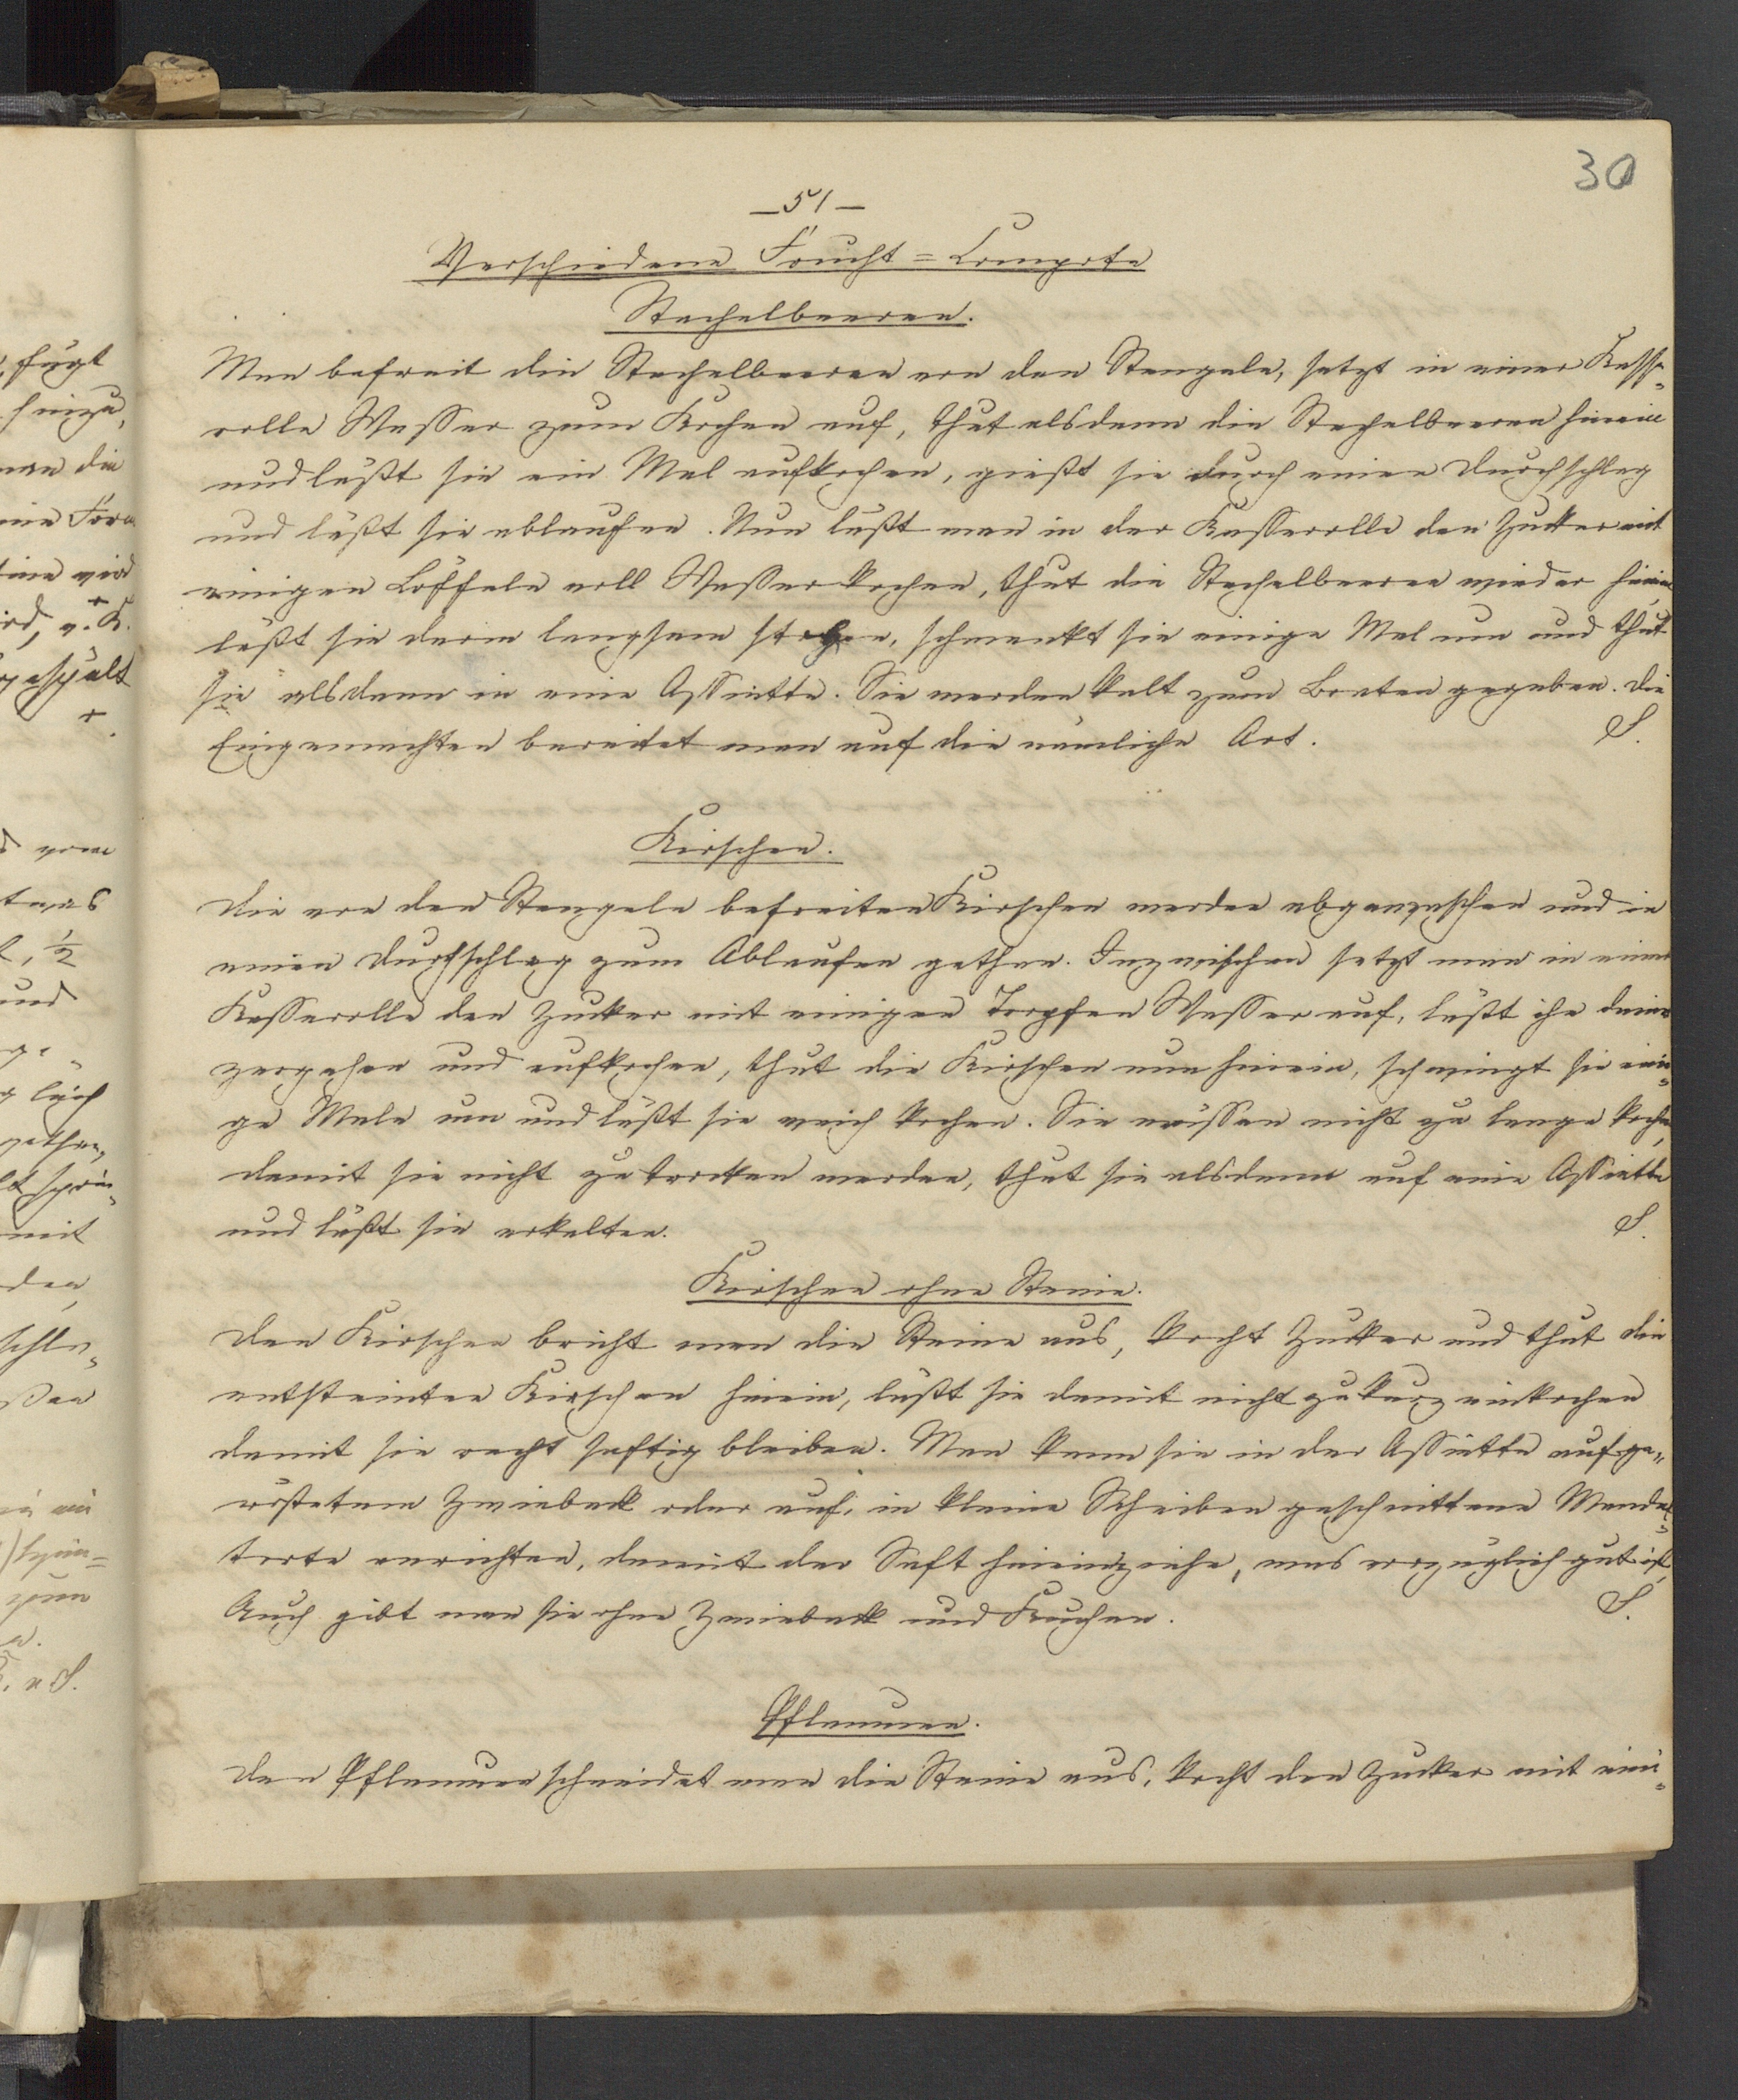 30
— 51 —
Verschiedene Frucht=Compote
Stachelbeeren.
Man befreit die Stachelbeeren von den Stengeln, setzt in einer Kasse-
rolle Wasser zum Kochen auf, thut alsdann die Stachelbeeren hinein
und läßt sie ein Mal aufkochen, gießt sie durch einen Durchschlag
und läßt sie ablaufen. Nun läßt man in der Kasserolle den Zucker mit
einigen Löffeln voll Wasser kochen, thut die Stachelbeeren wieder hinein,
läßt sie darin langsam stehen, schwenkt sie einige Mal um und thut
sie alsdann in eine Assiette. Sie werden kalt zum Braten gegeben. Die
Eingemachten bereitet man auf die nämliche Art. S.
Kirschen.
Die von den Stengeln befreiten Kirschen werden abgewaschen und in
einen Durchschlag zum Ablaufen gethan. Inzwischen setzt man in einer
Kasserolle den Zucker mit einigen Tropfen Wasser auf, läßt ihn darin
zergehen und aufkochen, thut die Kirschen nun hinein, schwingt sie eini-
ge Male um und läßt sie weich kochen. Sie müssen nicht zu lange kochen,
damit sie nicht zu trocken werden, thut sie alsdann auf eine Assiette
und läßt sie erkalten. S.
Kirschen ohne Steine.
Den Kirschen bricht man die Steine aus, kocht Zucker und thut die
entsteinten Kirschen hinein, läßt sie damit nicht zu kurz einkochen
damit sie recht saftig bleiben. Man kann sie in der Assiette auf ge-
röstetem Zwieback oder auf, in kleine Scheiben geschnittene Mandel-
torte anrichten, damit der Saft hineinziehe, was vorzüglich gut ist,
Auch gibt man sie ohne Zwieback und Kuchen. S.
Pflaumen.
Den Pflaumen schneidet man die Steine aus, kocht den Zucker mit eini-